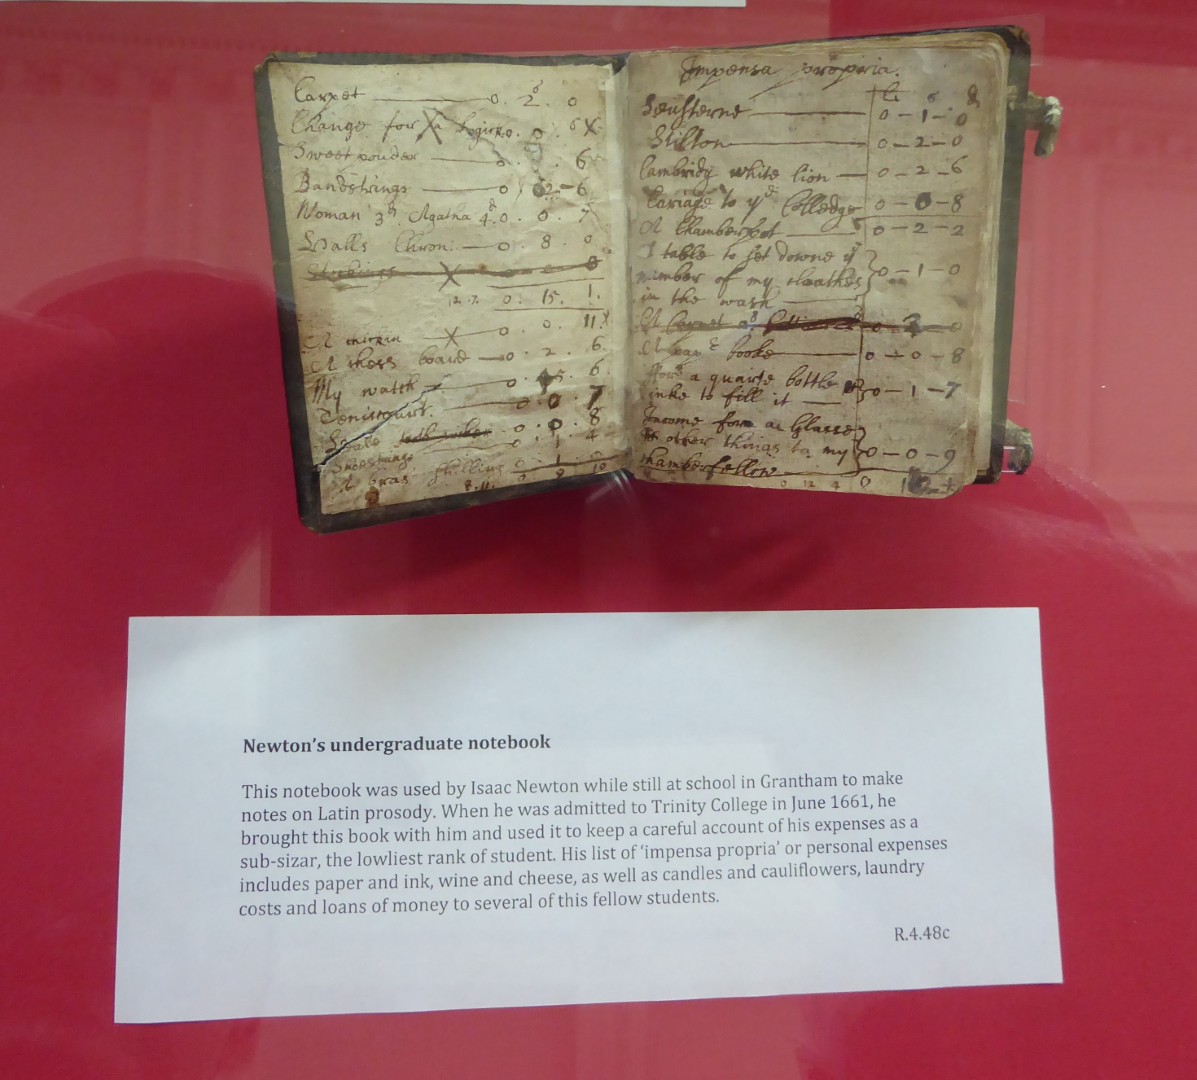 Carpet 0. 2. 0
Change for a 0. 6 X
Sweet pouder 0. . 6
Bandstrings 0 2-6
Woman 3d Agatha 4d. 0. 0. 7
Halls Chron: 0. 8. 0
Stockings X
0. 15. 1.
X 0. 0. 11.
A chess board 0. 2. 6.
My watch 0. 5. 6
Teniscourt. 0. 0. 7
0. 0. 8
Shoestrings 0. 1. 4
Impensa propria.
Seusterne 0-1-0
Stilton 0-2-0
Cambridg white lion 0-2-6
Cariage to ye Colledge 0-0-8
A Chamberpot 0-2-2
A table to set downe ye
number of my cloathes 0-1-0
in the wash
A paper booke 0-0-8
For a quarte bottle & 0-1-7
inke to fill it
Income for a Glasse
& other things to my 0-0-9
Chamberfellow
Newton’s undergraduate notebook
This notebook was used by Isaac Newton while still at school in Grantham to make
notes on Latin prosody. When he was admitted to Trinity College in June 1661, he
brought this book with him and used it to keep a careful account of his expenses as a
sub-sizar, the lowliest rank of student. His list of ‘impensa propria’ or personal expenses
includes paper and ink, wine and cheese, as well as candles and cauliflowers, laundry
costs and loans of money to several of this fellow students.
R.4.48c